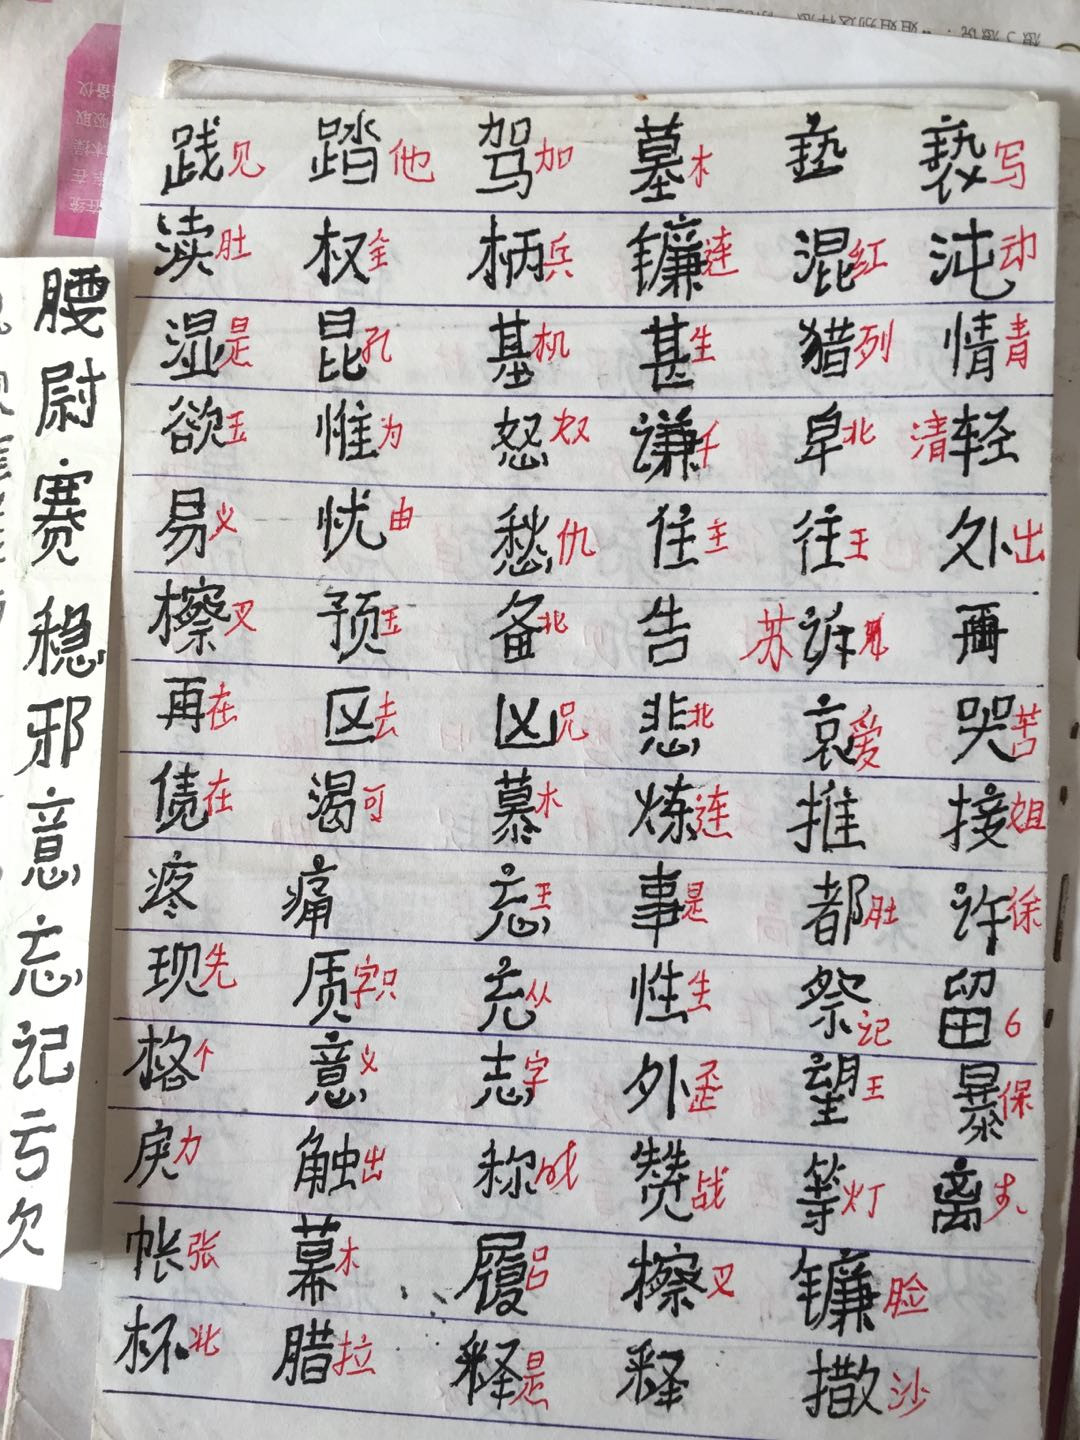 践见 踏他 驾加 墓木 垫 亵写
渎肚 权全 柄兵 镰连 混红 沌动
湿是 昆孔 基机 甚生 猎列 情青
欲玉 惟为 怒奴 谦千 卑北 清轻
易义 忧由 愁仇 住主 往王 外出
檫叉 预玉 备北 告 苏诉 再
再在 区去 凶兄 悲北 哀爱 哭苦
债在 渴可 慕木 炼连 推 接姐
疼 痛 忘王 事是 都肚 许徐
现先 质字只 充从 性生 祭记 留6
格个 意义 志字 外歪 望王 暴保
戾力 触出 称 赞战 等灯 离
帐张 幕木 履吕 檫叉 镰脸
杯北 腊拉 释是 释 撒沙
腰
尉
赛
稳
邪
意
忘
记
亏
欠